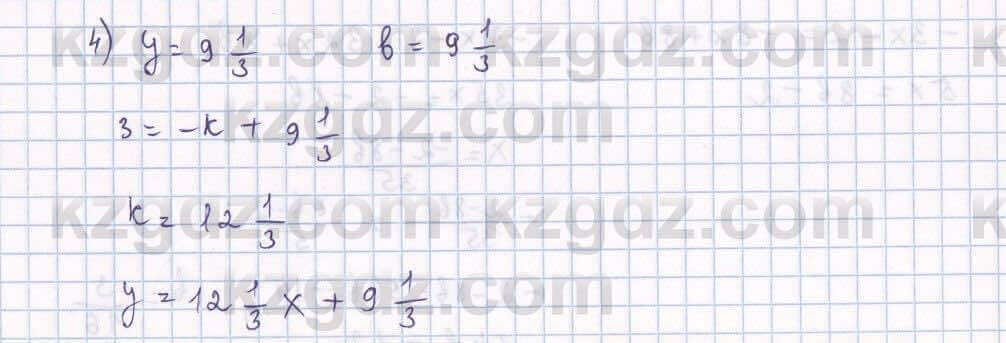 4) y = 9 1/3 b = 9 1/3
3 = -k + 9 1/3
k = 12 1/3
y = 12 1/3 x + 9 1/3
kzgdz.com kzgdz.com
kzgdz.com
kzgdz.com kzgdz.com
kzgdz.com